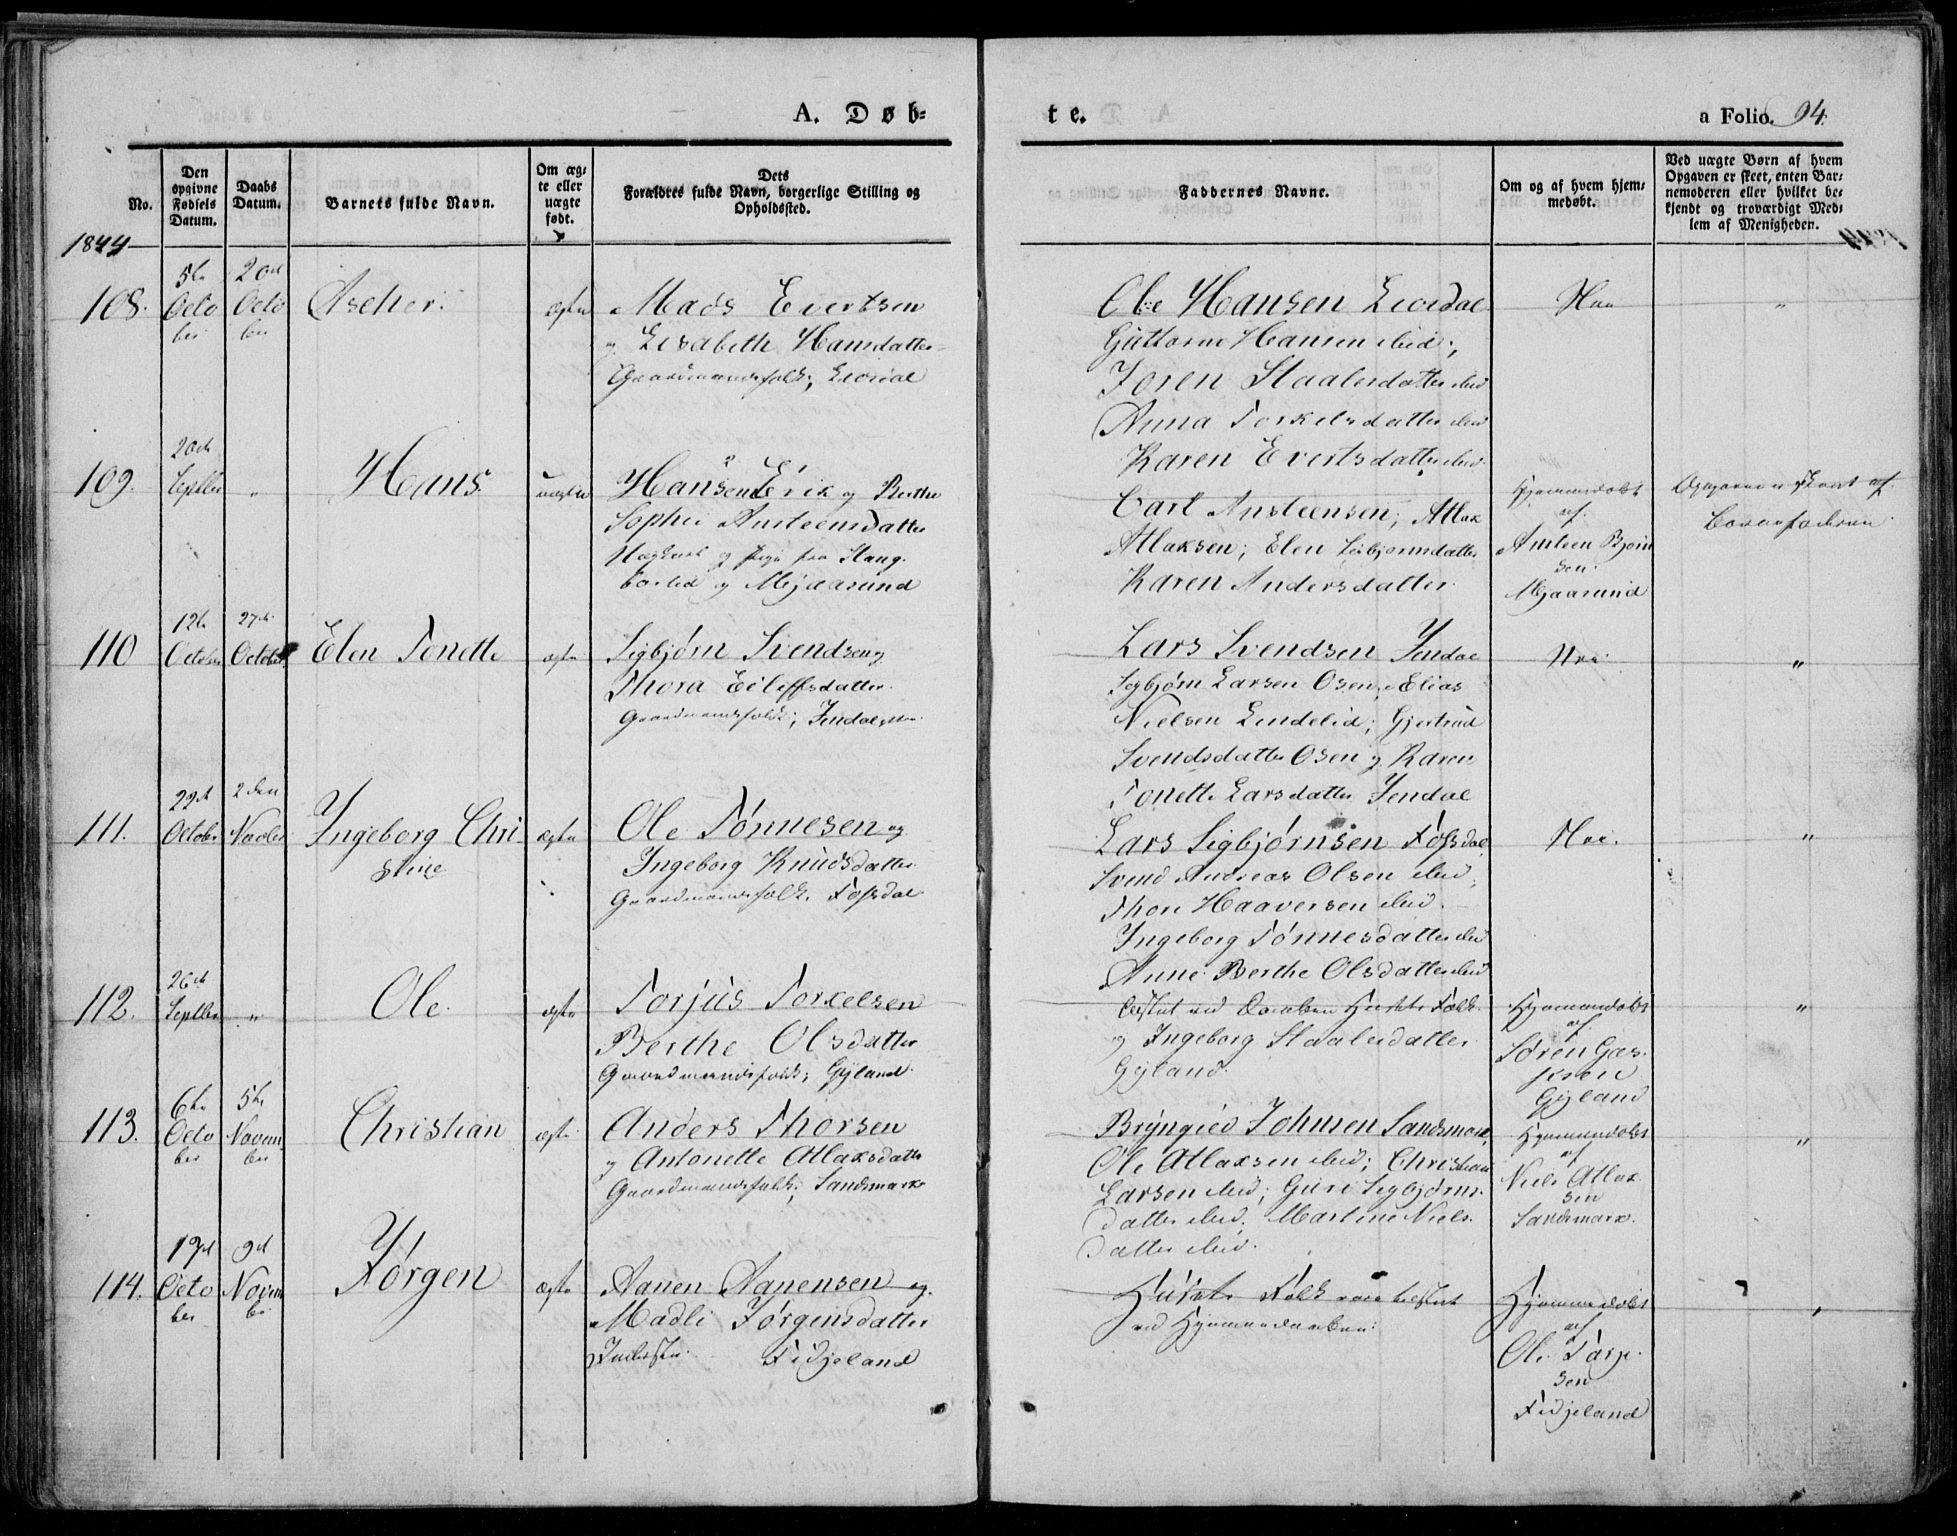 A. Døb=
te.
a Folio. 94.
No.
Den opgivne Fødsels Datum.
Daabs Datum.
Barnets fulde Navn.
Om æg= te eller uægte født.
Dets Forældres fulde Navn, borgerlige Stilling og Opholdssted.
Faddernes Navne.
Om og af hvem hjem= medøbt.
Ved uægte Børn af hvem Opgaven er skeet, enten Bar= nemoderen eller hvilket be= kjendt og troværdigt Med= lem af Menigheden.
1844
108.
5te
Octo
ber
20de
Octo
ber
Ascher.
ægte
Mads Evertsen
og Lisabeth Hansdatter
Gaardmandsfolk,
Ole Hansen
Guttorm Hansen ibid;
Joren Staalesdatter ibid
Anna Torkelsdatter ibid
Karen Evertsdatter ibid.
Nei
"
109.
20de
Septbr
"
Hans.
uægte
Hans Erik og Berthe
Sophie Ansteensdatter
og Pige fra Stang
borlid og Mjaasund
Carl Ansteensen; Atlak
Atlaksen; Elen Sigbjørnsdatter
Karen Andersdatter
Hjemmedøbt
af
Ansteen Bjørn
sen
Mjaasund
Opgaven er skeet af
Barnefaderen.
110
12te
October
27de
October
Elen Tonette
ægte
Sigbjørn Svendsen og
Thora Eileffsdatter
Gaardmandsfolk;
Lars Svendsen Jendal
Sigbjørn Larsen Osen; Elias
Nielsen Lindelid; Gjertrud
Svendsdatter Osen og Karen
Tonette Larsdatter Jendal
Nei.
"
111.
22de
Octobr
2den
Novbr
Ingeborg Chri
stine
ægte
Ole Tønnesen og
Ingeborg Knudsdatter
Gaardmandsfolk. Fossdal
Lars Sigbjørnsen Fossdal
Svend Andreas Olsen ibid;
Thore Haaversen ibid.
Ingeborg Tønnesdatter ibid
Anne Berthe Olsdatter ibid
Nei.
"
112.
26de
Septbr
"
Ole.
ægte
Torjus Torkelsen
Berthe Olsdatter
Gaardmandsfolk; Gyland.
tilstæde ved Daaben Husets Folk
og Ingeborg Staalesdatter
Gyland.
Hjemmedøbt
af
Søren Gas
Gyland
"
113.
6te
Octo
ber
5te
Novem
ber
Christian
ægte
Anders Thorsen
og Antonette Atlaksdatter
Gaardmandsfolk; Sandsmark
Bryngied Johnsen Sandsmark,
Ole Atlaksen ibid; Christian
Larsen ibid; Guri Sigbjørns
datter ibid. Martine Niels
datter ibid.
Hjemmedøbt
af
Niels Atlak
sen
Sandsmark.
"
114.
17de
Octo
ber
9de
Novem
ber
Jørgen
ægte
Aanen Aanensen og
Madli Jørgensdatter
Inderster. Fidjeland
Husets Folk vare tilstæde
ved Hjemmedaaben.
Hjemmedøbt
af
Ole Tarje
sen
Fidjeland
"